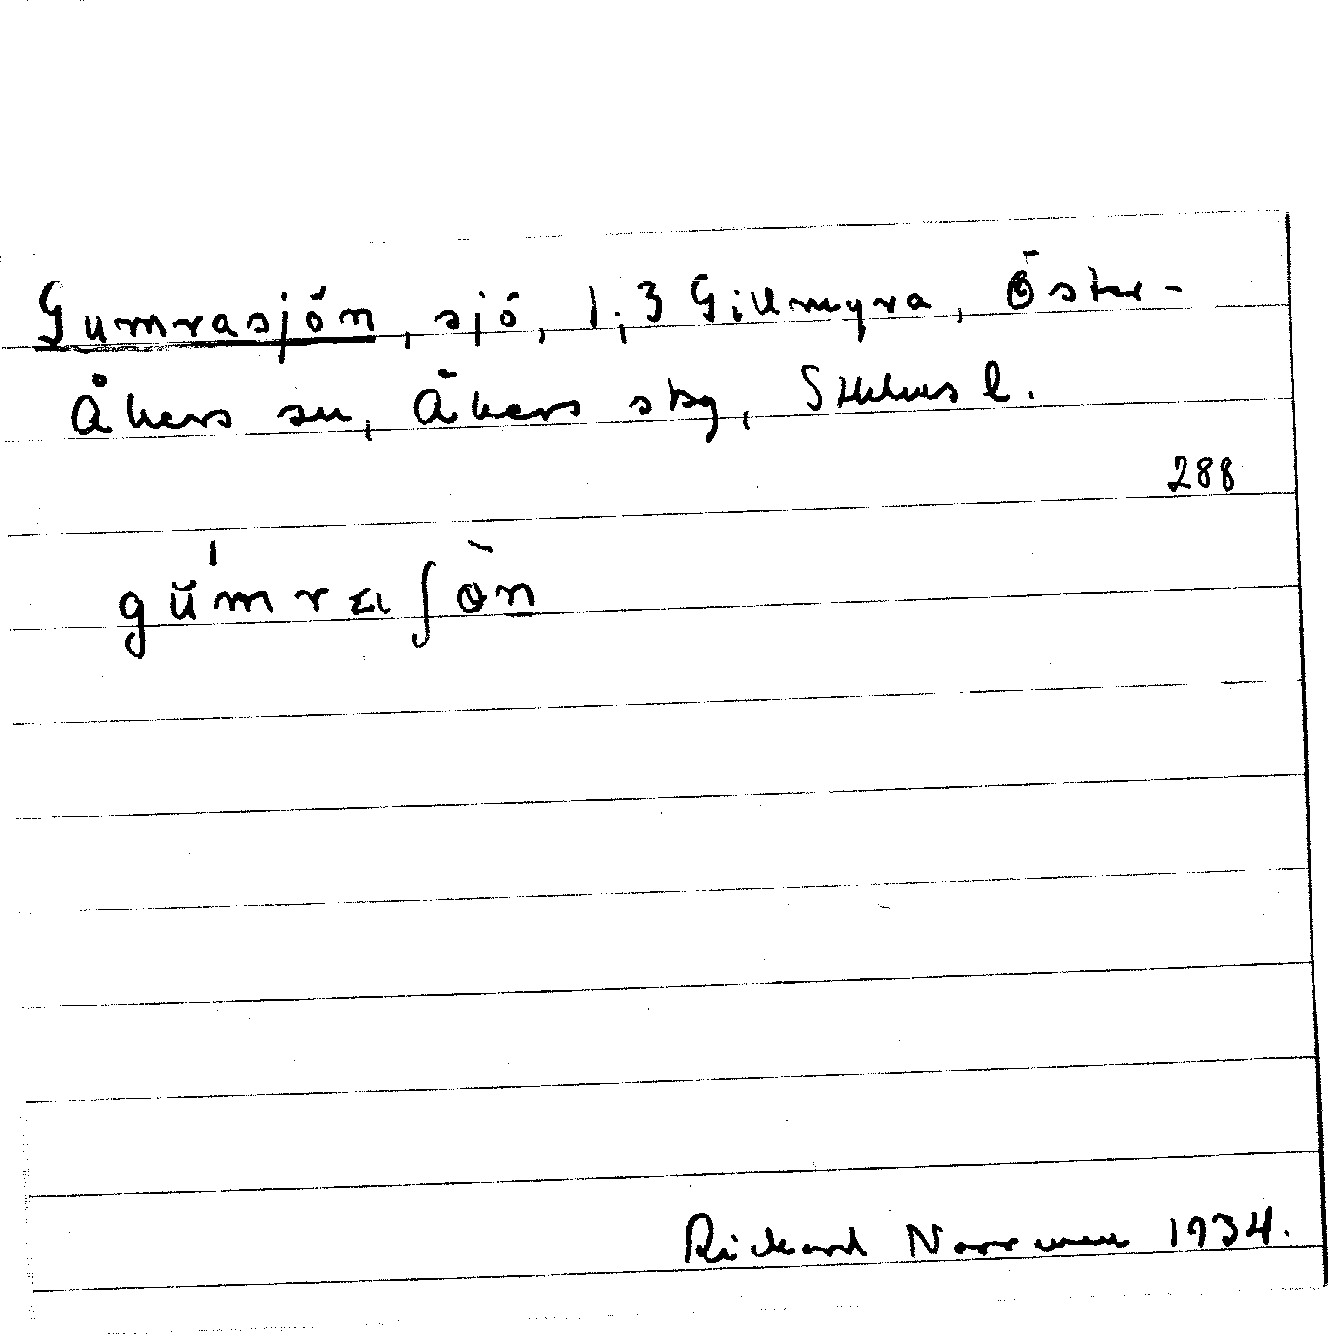 Gumrasjön, sjö, 1;3 Gillmyra, Öster-
Åkers sn, Åkers skg, Sthlms l.
288
gŭmraʃön
Rickard Norrman 1934.